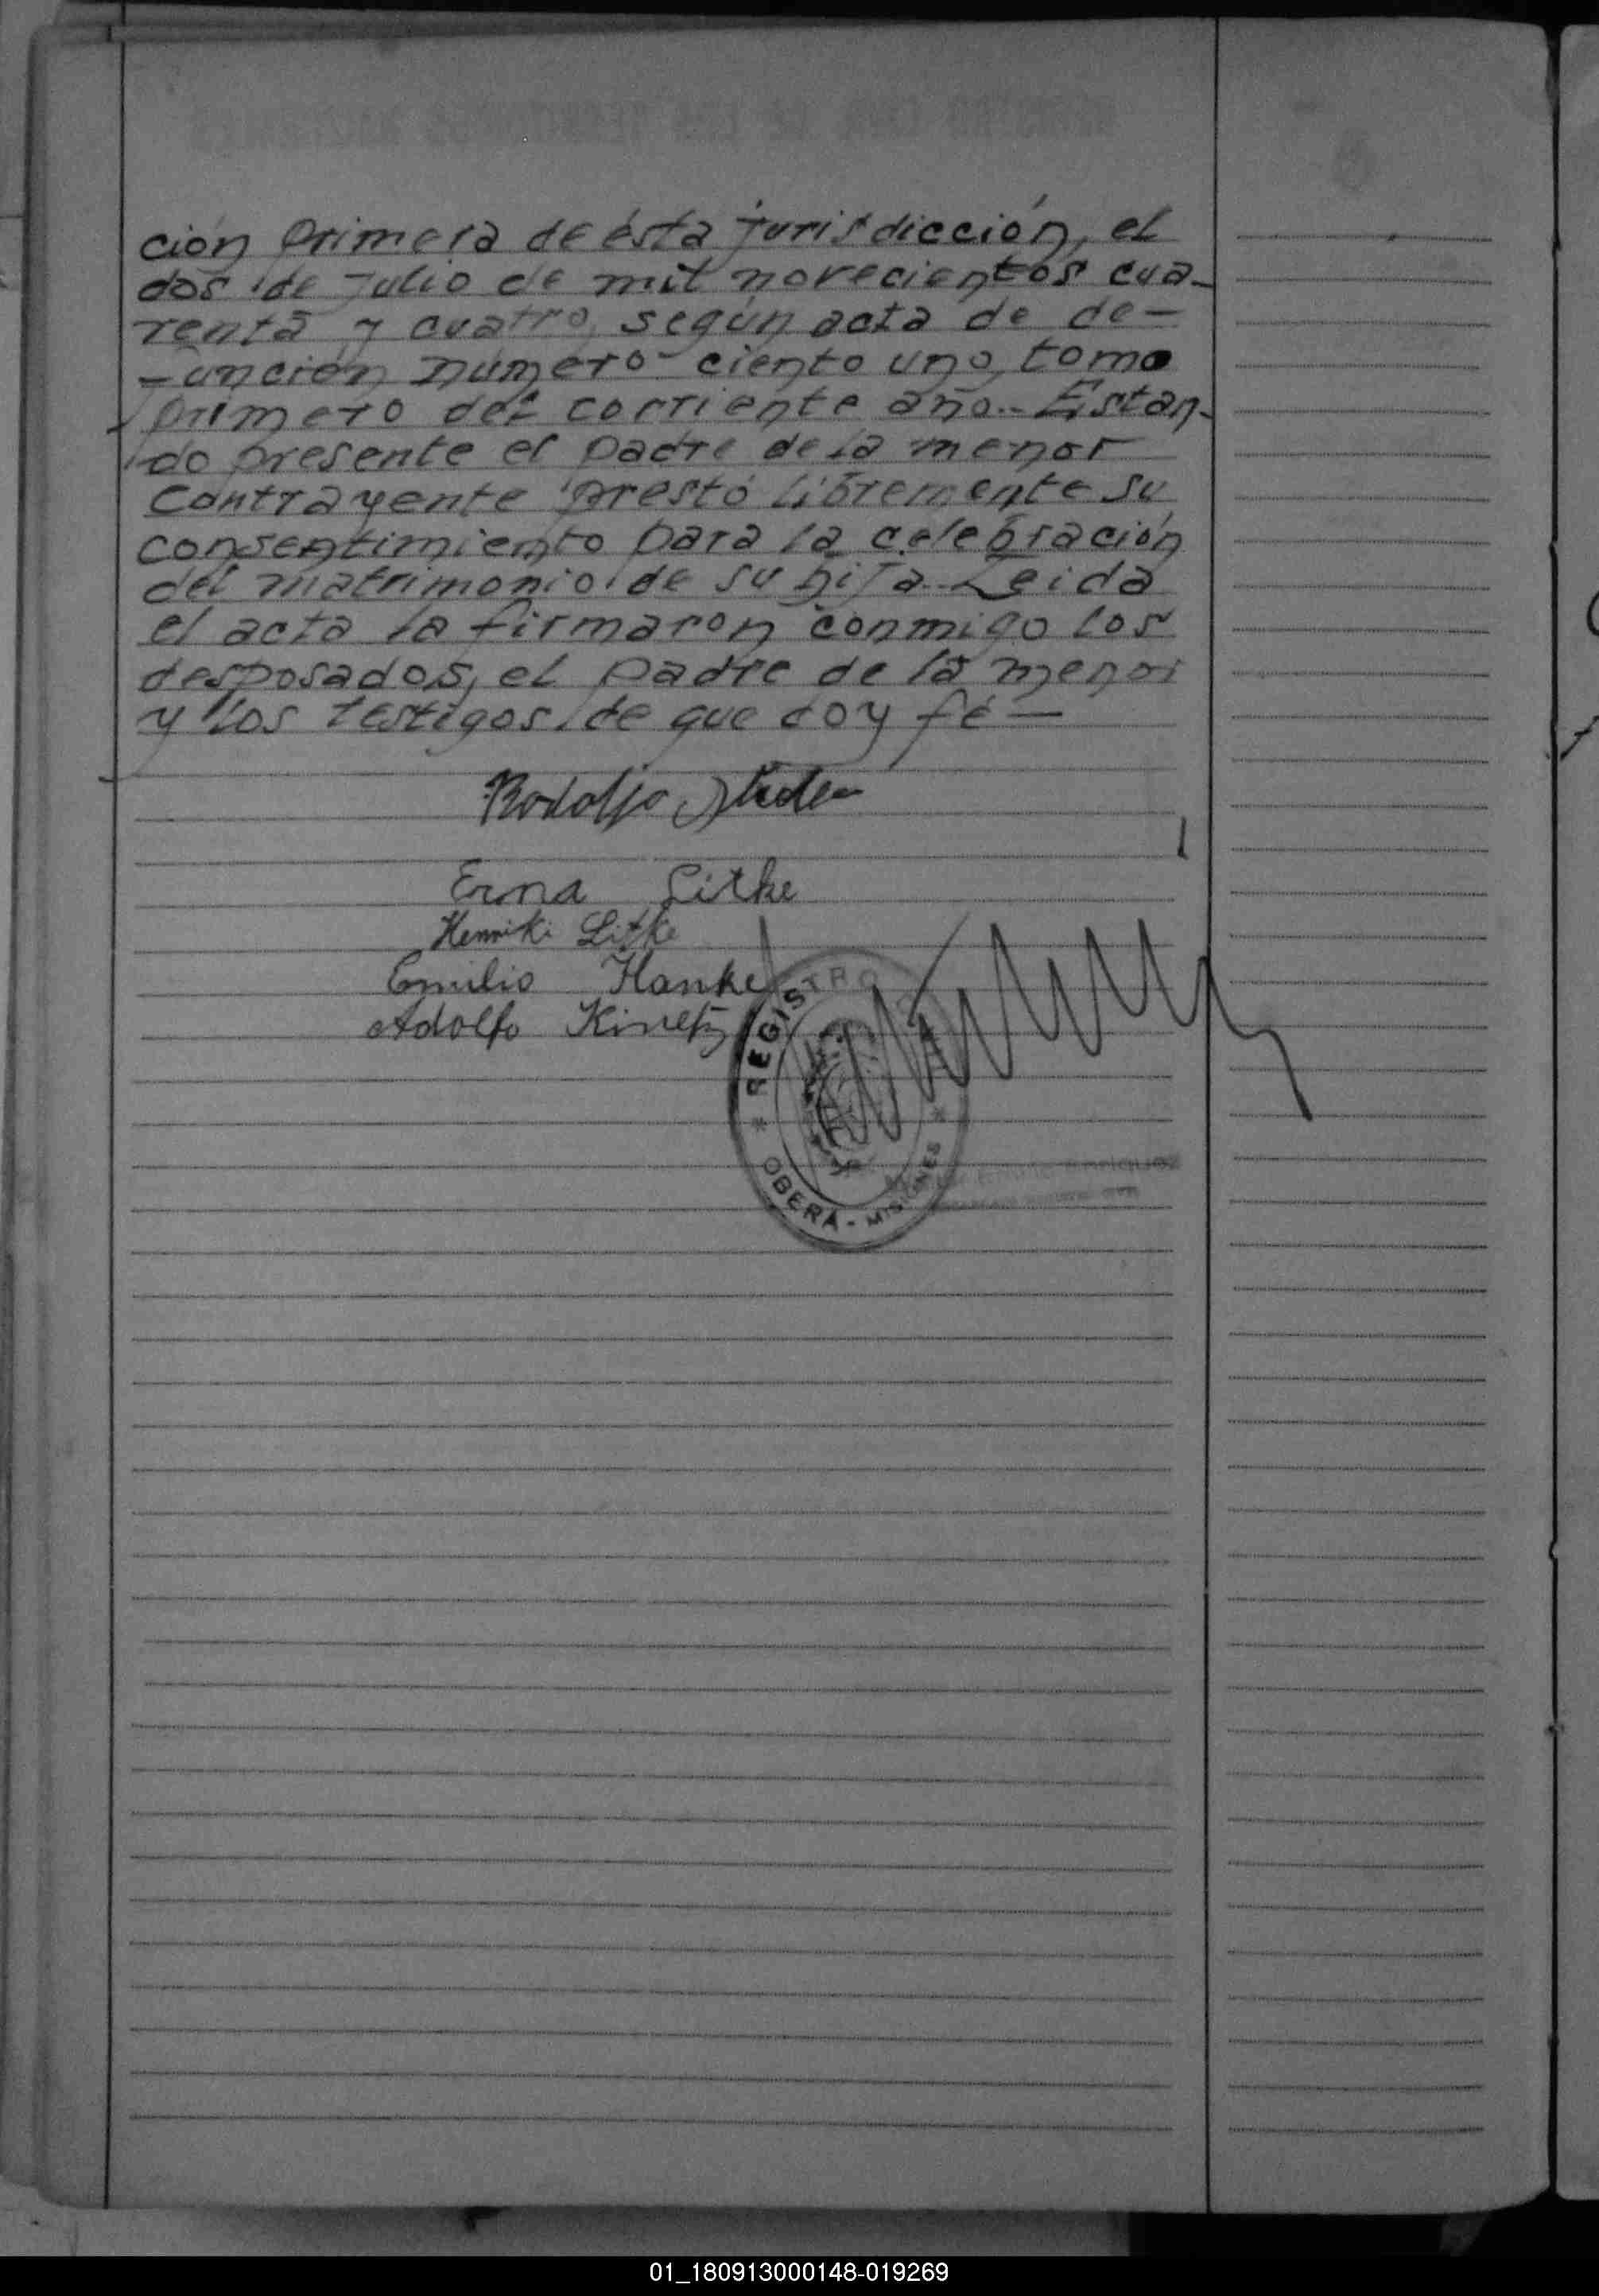 ción primera de ésta jurisdicción, el
dos de julio de mil novecientos cua-
renta y cuatro, según acta de de-
-unción número ciento uno, tomo
primero del corriente año.- Estan-
do presente el padre de la menor
contrayente prestó libremente su
consentimiento para la celebración
del matrimonio de su hija.- Leida
el acta la firmaron conmigo los
desposados, el padre de la menor
y los testigos, de que doy fé —
Rodolfo
Erna Litke
Litke
Emilio Hanke
Adolfo
REGISTRO
OBERA - MISIONES
01_180913000148-019269